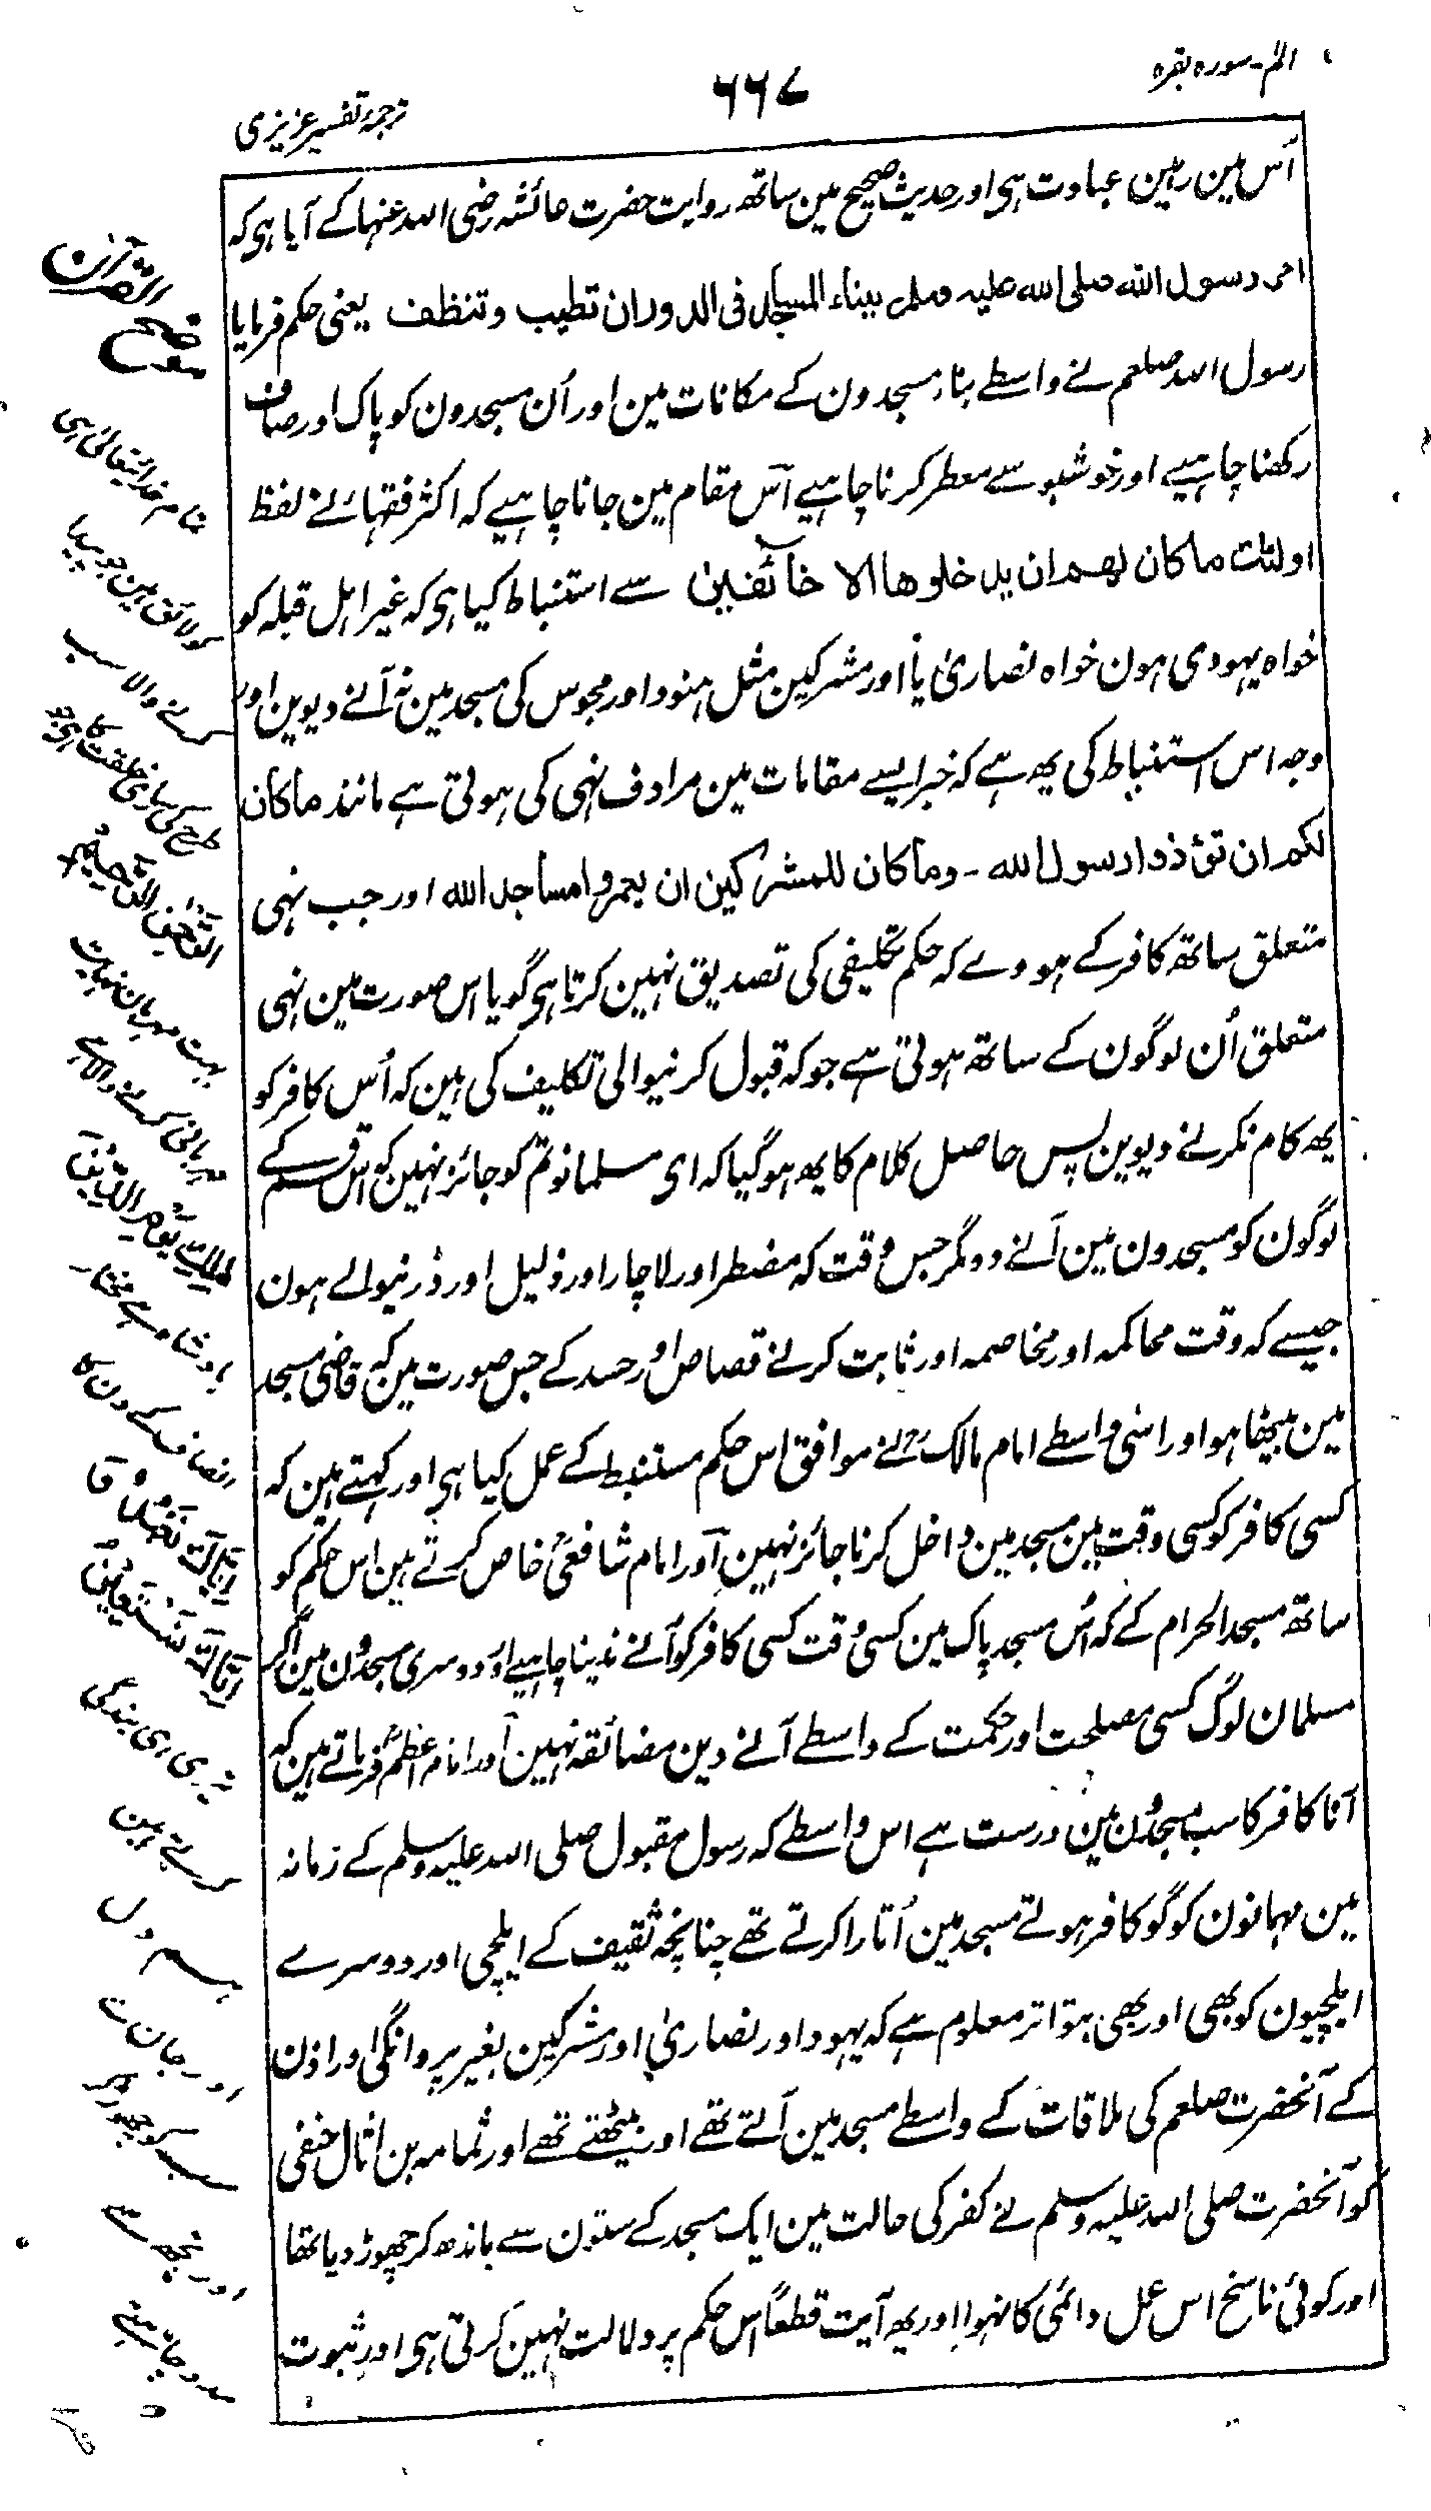 الم - سورہ بقرہ
۶۶۷
ترجمۂ تفسیر عزیزی
اُس مین رہین عبادت ہی اور حدیث صحیح مین ساتھ روایت حضرت عائشہ رضی اللہ عنہا کے آیا ہی کہ
امر رسول اللہ صلی اللہ علیہ وسلم ببناء المساجد فی الدور ان تطیب وتنظف یعنی حکم فرمایا
رسول اللہ صلعم نے واسطے بناء مسجدون کے مکانات مین اور اُن مسجدون کو پاک اور صاف
رکھنا چاہیے اور خوشبو سے معطر کرنا چاہیے اس مقام مین جانا چاہیے کہ اکثر فقہا نے لفظ
اولئک ماکان لھم ان یدخلوھا الا خائفین سے استنباط کیا ہی کہ غیر اہل قبلہ کو
خواہ یہودی ہون خواہ نصاریٰ یا اور مشرکین مثل ہنود اور مجوس کی مسجد مین نہ آنے دیوین اور
وجہ اس استنباط کی یہ ہے کہ خبر ایسے مقامات مین مرادف نہی کی ہوتی ہے مانند ماکان
لکم ان تؤذوا رسول اللہ - وماکان للمشرکین ان یعمروا مساجد اللہ اور جب نہی
متعلق ساتھ کافر کے ہووے کہ حکم تکلیفی کی تصدیق نہین کرتا ہی گویا اس صورت مین نہی
متعلق اُن لوگون کے ساتھ ہوتی ہے جو کہ قبول کرنیوالی تکلیف کی ہین کہ اُس کافر کو
یہ کام نکرنے دیوین پس حاصل کلام کا یہ ہوگیا کہ ای مسلمانو تم کو جائز نہین کہ اس قسم کے
لوگون کو مسجدون مین آنے دو مگر جس وقت کہ مضطر اور لاچار اور ذلیل اور ڈرنیوالے ہون
جیسے کہ وقت محاکمہ اور مخاصمہ اور ثابت کرنے قصاص اور حد کے جس صورت مین کہ قاضی مسجد
مین بیٹھا ہو اور اسی واسطے امام مالکؒ نے موافق اس حکم مستنبط کے عمل کیا ہی اور کہتے ہین کہ
کسی کافر کو کسی وقت مین مسجد مین داخل کرنا جائز نہین اور امام شافعیؒ خاص کرتے ہین اس حکم کو
ساتھ مسجد الحرام کے کہ اُس مسجد پاک مین کسی وقت کسی کافر کو آنے ندینا چاہیے اور دوسری مسجدون مین اگر
مسلمان لوگ کسی مصلحت اور حکمت کے واسطے آنے دین مضائقہ نہین اور امام اعظمؒ فرماتے ہین کہ
آنا کافر کا سب مسجدون مین درست ہے اس واسطے کہ رسول مقبول صلی اللہ علیہ وسلم کے زمانہ
مین مہمانون کو گو کافر ہوتے مسجد مین اُتارا کرتے تھے چنانچہ ثقیف کے ایلچی اور دوسرے
ایلچیون کو بھی اور بھی بتواتر معلوم ہے کہ یہود اور نصاریٰ اور مشرکین بغیر پروانگی اور اذن
کے آنحضرت صلعم کی ملاقات کے واسطے مسجد مین آتے تھے اور بیٹھتے تھے اور ثمامہ بن اثال حنفی
کو آنحضرت صلی اللہ علیہ وسلم نے کفر کی حالت مین ایک مسجد کے ستون سے باندھ کر چھوڑ دیا تھا
اور کوئی ناسخ اس عمل دائمی کا نہوا اور یہ آیت قطعاً اس حکم پر دلالت نہین کرتی ہی اور ثبوت
موضح
القرآن
کے لائق ہین جو پیدا
کرنے والا سب
طرح کی ساری خلقت کا ہی
الرَّحْمٰنِ الرَّحِیْمِ
بہت مہربان نہایت
مہربانی کرنے والا ہے
مٰلِکِ یَوْمِ الدِّیْنِ
بادشاہ ہے مختار
انصاف کے دن کا
اِیَّاکَ نَعْبُدُ وَ
اِیَّاکَ نَسْتَعِیْنُ
تیری ہی بندگی
کرتے ہین
ہم دل
اور جان سے
سب کو چھوڑ کر
اور تجھ سے
مدد چاہتے